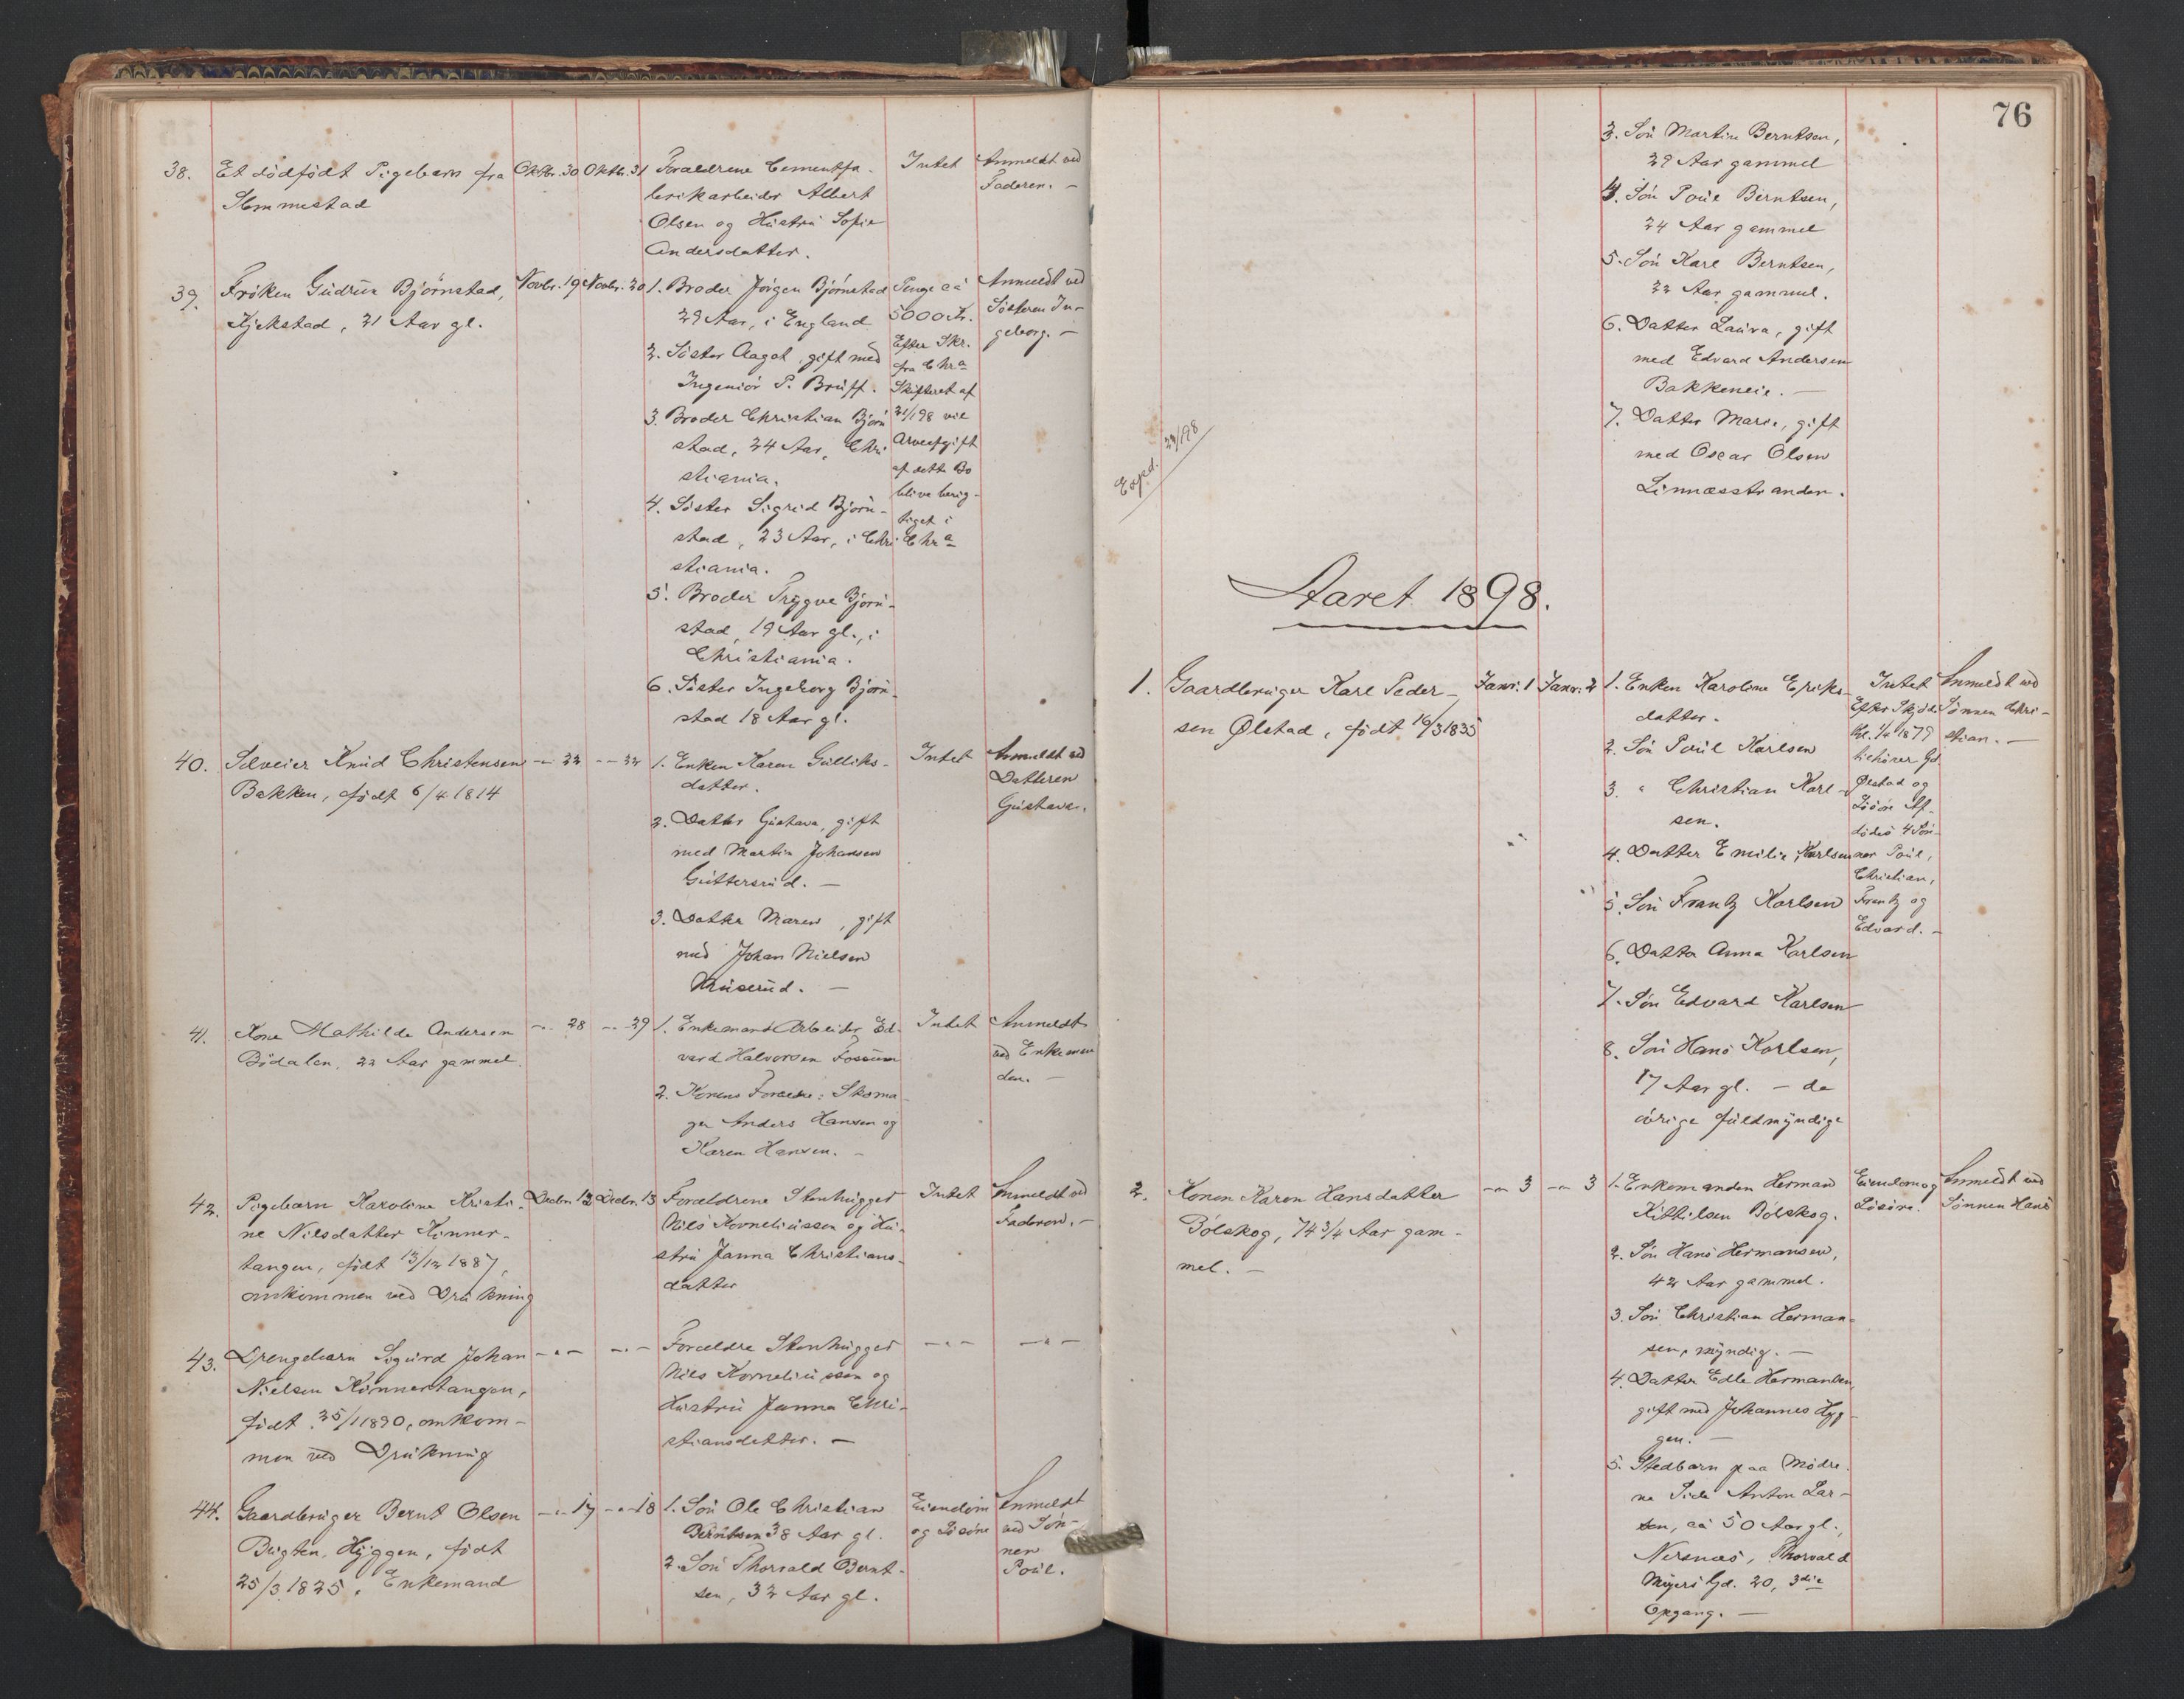 38. Et dödfödt Pigebarn fra
Slemmestad
Oktbr. 30
Oktbr. 31
Forældrene Cementfa-
brikarbeider Albert
Olsen og Hustru Sofie
Andersdatter.
Intet
Anmeldt ved
Faderen. —
39. Fröken Gudrun Björnstad,
Kjekstad, 21 Aar gl.
Novbr. 19
Novbr. 20
1. Broder Jörgen Björnstad
29 Aar, i England
2. Söster Aagot, gift med
Ingeniör P. Bruff.
3. Broder Christian Björn
stad, 24 Aar, Chri
stiania.
4. Söster Sigrid Björn-
stad, 23 Aar, i Chri
stiania.
5. Broder Trygve Björn-
stad, 19 Aar gl., i
Christiania.
6. Söster Ingeborg Björn-
stad 18 Aar gl.
Penge ca
5000 Kr.
Efter Skr.
fra Chra
Skifteret af
21/1 98 vil
Arveafgift
af dette Bo
blive berig-
tiget i
Chra
Anmeldt ved
Sösteren In-
geborg. —
40. Selveier Knud Christensen
Bakken, födt 6/4 1814
— 22
— 22
1. Enken Karen Gulliks-
datter.
2. Datter Gustava, gift
med Martin Johansen
Guttersrud. —
3. Datter Maren, gift
med Johan Nielsen
Kruserud. —
Intet
Anmeldt ved
Datteren
Gustava.
41. Kone Mathilde Andersen
Bödalen, 22 Aar gammel.
— 28
— 29
1. Enkemand Arbeider Ed-
vard Halvorsen Fossum
2. Konens Forældre: Skoma-
ger Anders Hansen og
Karen Hansen. —
Intet
Anmeldt
ved Enkeman
den. —
42. Pigebarn Karoline Kristi-
ne Nilsdatter Kinner-
tangen, födt 13/12 1887,
omkommen ved Drukning
Decbr. 12
Decbr. 13
Forældrene Stenhugger
Nils Korneliussen og Hu-
stru Janna Christians-
datter
Intet
Anmeldt ved
Faderen. —
43. Drengebarn Sigurd Johan
Nielsen Kinnertangen,
födt 25/1 1890, omkom-
men ved Drukning
— " —
— " —
Forældre Stenhugger
Nils Korneliussen og
Hustru Janna Chri-
stiansdatter. —
— " —
— " —
44. Gaardbruger Bernt Olsen
Bugten, Hyggen, födt
25/3 1825, Enkemand
— " — 17
— " — 18
1. Sön Ole Christian
Berntsen 38 Aar gl.
2. Sön Thorvald Bernt-
sen, 32 Aar gl.
Eiendom
og Lösöre
Anmeldt
ved Sön-
nen
Poul.
76
3. Sön Martin Berntsen,
29 Aar gammel
4. Sön Poul Berntsen,
24 Aar gammel
5. Sön Karl Berntsen,
22 Aar gammel.
6. Datter Laura, gift
med Edvard Andersen
Bakkeneie. —
7. Datter Marie, gift
med Oscar Olsen
Linnæsstranden.
Exped. 29/1 98
Aaret 1898.
1. Gaardbruger Karl Peder-
sen Ølstad, födt 16/3 1835
Janr. 1
Janr. 2
1. Enken Karoline Eriks-
datter.
2. Sön Poul Karlsen
3. " Christian Karl-
sen.
4. Datter Emilie Karlsen
5. Sön Frantz Karlsen
6. Datter Anna Karlsen
7. Sön Edvard Karlsen
8. Sön Hans Karlsen,
17 Aar gl. — de
övrige fuldmyndige
Intet
Efter Skjöde
tilhörer Gd.
Ølstad og
Lösöre Af-
dödes 4 Søn-
ner Poul,
Christian,
Frantz og
Edvard. —
Anmeldt ved
Sönnen Chri-
stian. —
2. Konen Karen Hansdatter
Bölskog, 74 3/4 Aar gam-
mel. —
— " 3
— " 3
1. Enkemanden Herman
Kittilsen Bölskog.
2. Sön Hans Hermansen,
42 Aar gammel.
3. Sön Christian Herman-
sen, myndig. —
4. Datter Edle Hermansen,
gift med Johannes Hyg-
gen. —
5. Stedbarn paa Mödre-
ne Side Anton Lar-
sen, ca 50 Aar gl.,
Nersnæs, Thorvald
Meyers Gd. 20, 3die
Opgang. —
Eiendom og
Lösöre.
Anmeldt ved
Sönnen Hans